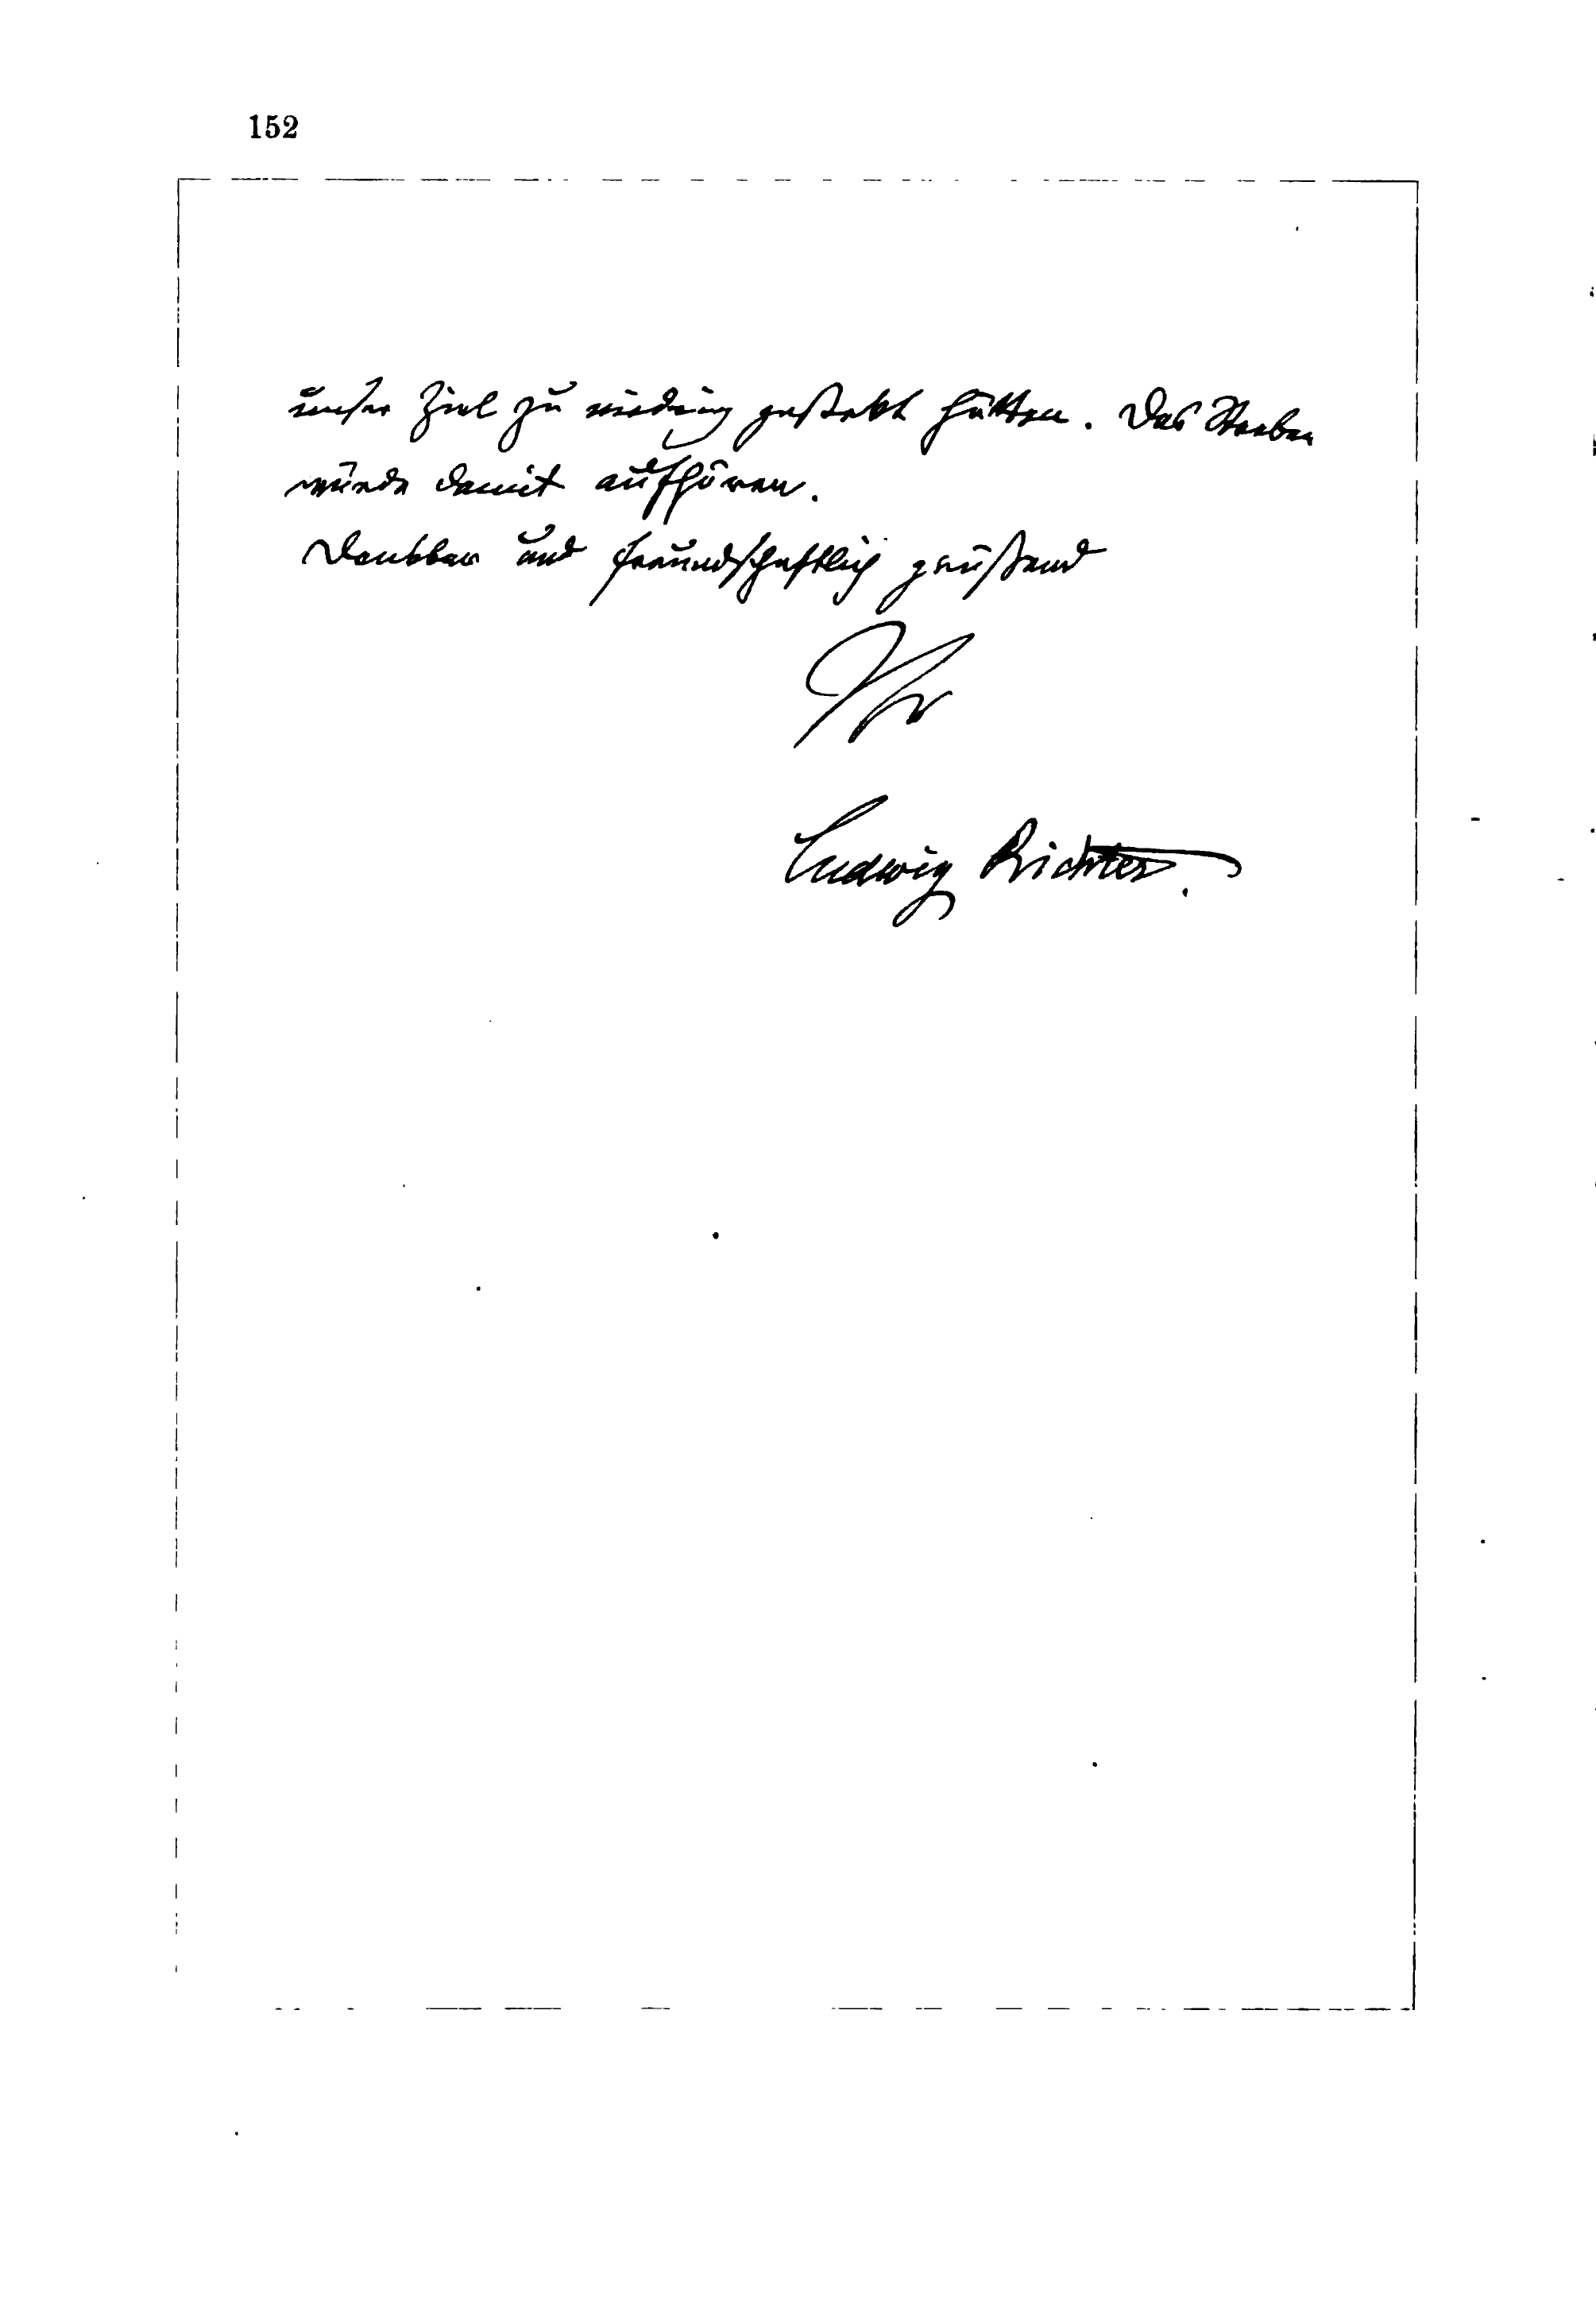 152
unser Ziel zu niedrig gestekt hätten. Das Streben
würde damit aufhören.
Dankbar und freundschaftlich grüßend
Ihr
Ludwig Richter.